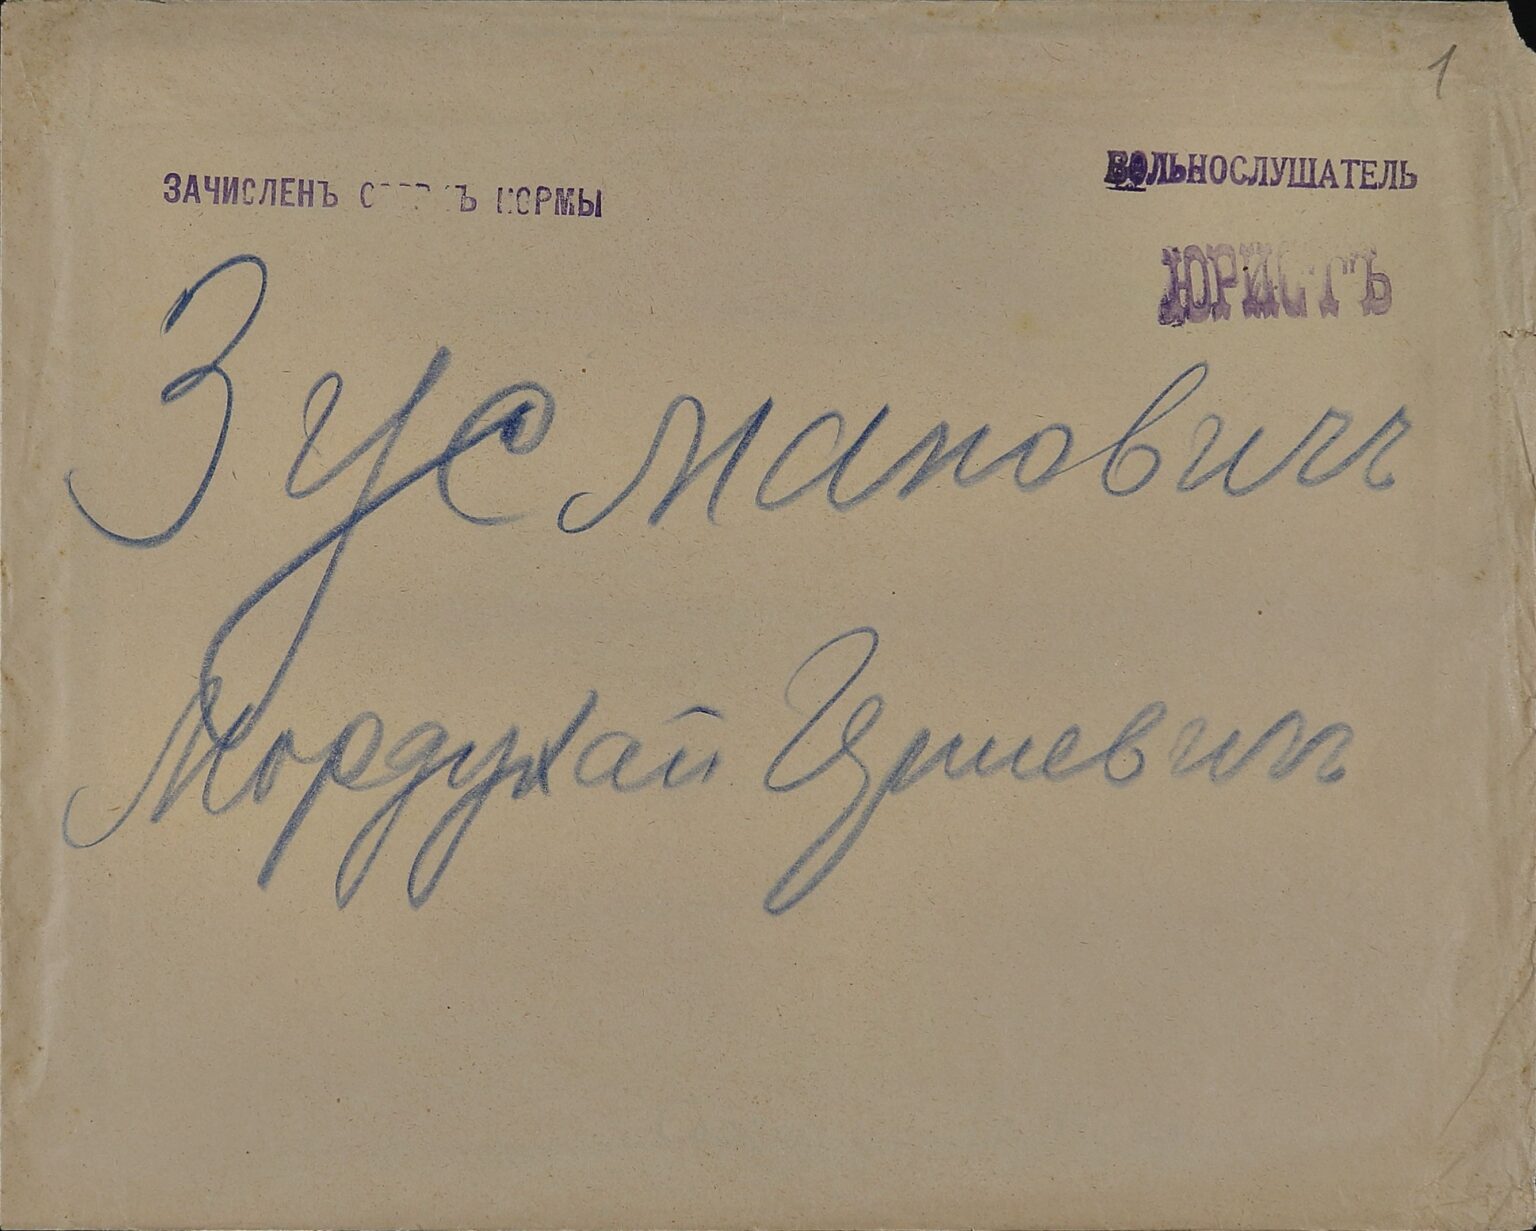 1
ВОЛЬНОСЛУШАТЕЛЬ
ЗАЧИСЛЕНЪ СВЕРХЪ НОРМЫ
ЮРИСТЪ
Зусмановичъ
Мордухай